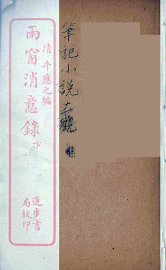 清牛應之編
雨窗消意錄 下
進步書局校印
筆記小說大觀